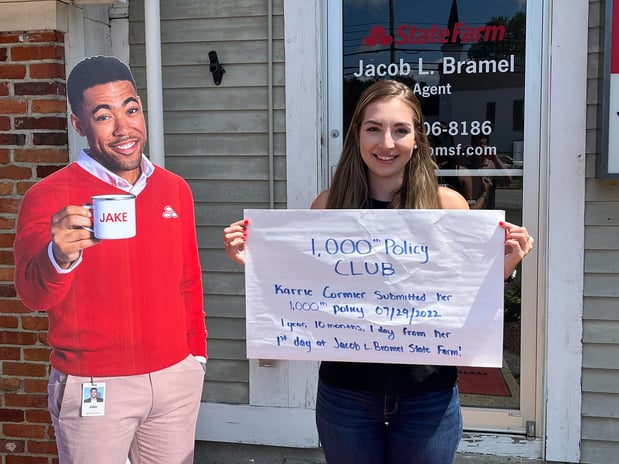 StateFarm
Jacob L. Bramel
Agent
06-8186
omsf.com
JAKE
1,000th Policy
CLUB
Karrie Cormier Submitted her
1,000th policy 07/29/2022
1 year, 10 months, 1 day from her
1st day at Jacob L Bramel State Farm!